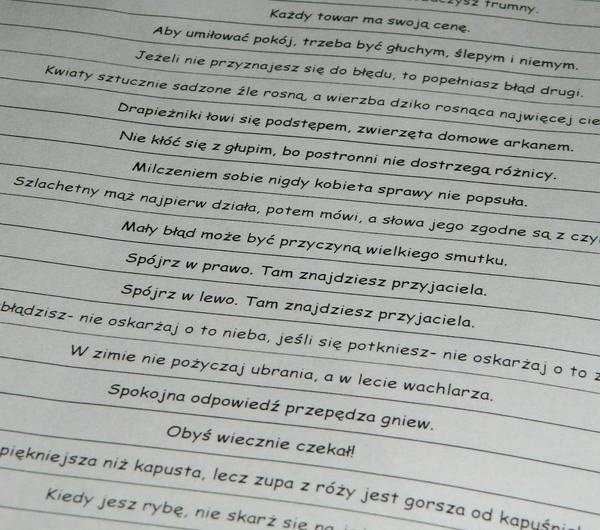 trumny.
Każdy towar ma swoją cenę.
Aby umiłować pokój, trzeba być głuchym, ślepym i niemym.
Jeżeli nie przyznajesz się do błędu, to popełniasz błąd drugi.
Kwiaty sztucznie sadzone źle rosną, a wierzba dziko rosnąca najwięcej
Drapieżniki łowi się podstępem, zwierzęta domowe arkanem.
Nie kłóć się z głupim, bo postronni nie dostrzegą różnicy.
Milczeniem sobie nigdy kobieta sprawy nie popsuła.
Szlachetny mąż najpierw działa, potem mówi, a słowa jego zgodne są z
Mały błąd może być przyczyną wielkiego smutku.
Spójrz w prawo. Tam znajdziesz przyjaciela.
Spójrz w lewo. Tam znajdziesz przyjaciela.
błądzisz- nie oskarżaj o to nieba, jeśli się potkniesz- nie oskarżaj o to
W zimie nie pożyczaj ubrania, a w lecie wachlarza.
Spokojna odpowiedź przepędza gniew.
Obyś wiecznie czekał!
piękniejsza niż kapusta, lecz zupa z róży jest gorsza od
Kiedy jesz rybę, nie skarż się na